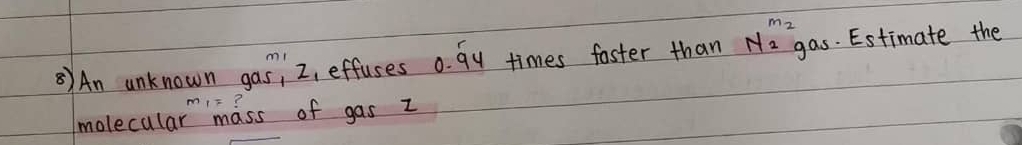 m2
m1
8) An unknown gas, Z, effuses 0.94 times faster than N2 gas. Estimate the
m1 = ?
molecular mass of gas Z